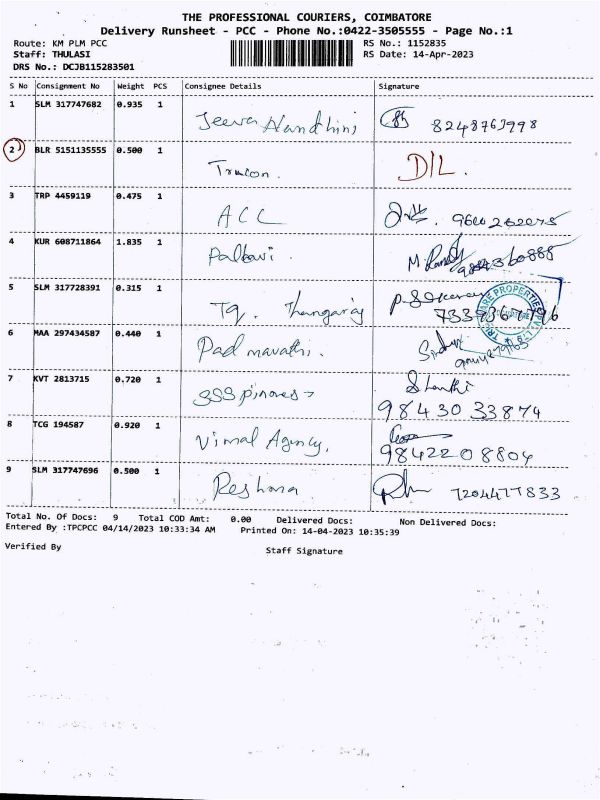 THE PROFESSIONAL COURIERS, COIMBATORE
Delivery Runsheet - PCC - Phone No.:0422-3505555 - Page No.:1
Route: KM PLM PCC RS No.: 1152835
Staff: THULASI RS Date: 14-Apr-2023
DRS No.: DCJB115283501
S No Consignment No Weight PCS Consignee Details Signature
1 SLM 317747682 0.935 1
Jeeva Nandhini 8248763998
2 BLR 5151135555 0.500 1
D/L.
3 TRP 4459119 0.475 1
ACC
4 KUR 608711864 1.835 1
Pallavi.
5 SLM 317728391 0.315 1
Tq. Thangaraj 7339367796
6 MAA 297434587 0.440 1
Padmavathi.
7 KVT 2813715 0.720 1
Shanthi
98430 33874
8 TCG 194587 0.920 1
Vimal Agency,
98422 08804
9 SLM 317747696 0.500 1
Reshma 7204477833
Total No. Of Docs: 9 Total COD Amt: 0.00 Delivered Docs: Non Delivered Docs:
Entered By :TPCPCC 04/14/2023 10:33:34 AM Printed On: 14-04-2023 10:35:39
Verified By Staff Signature